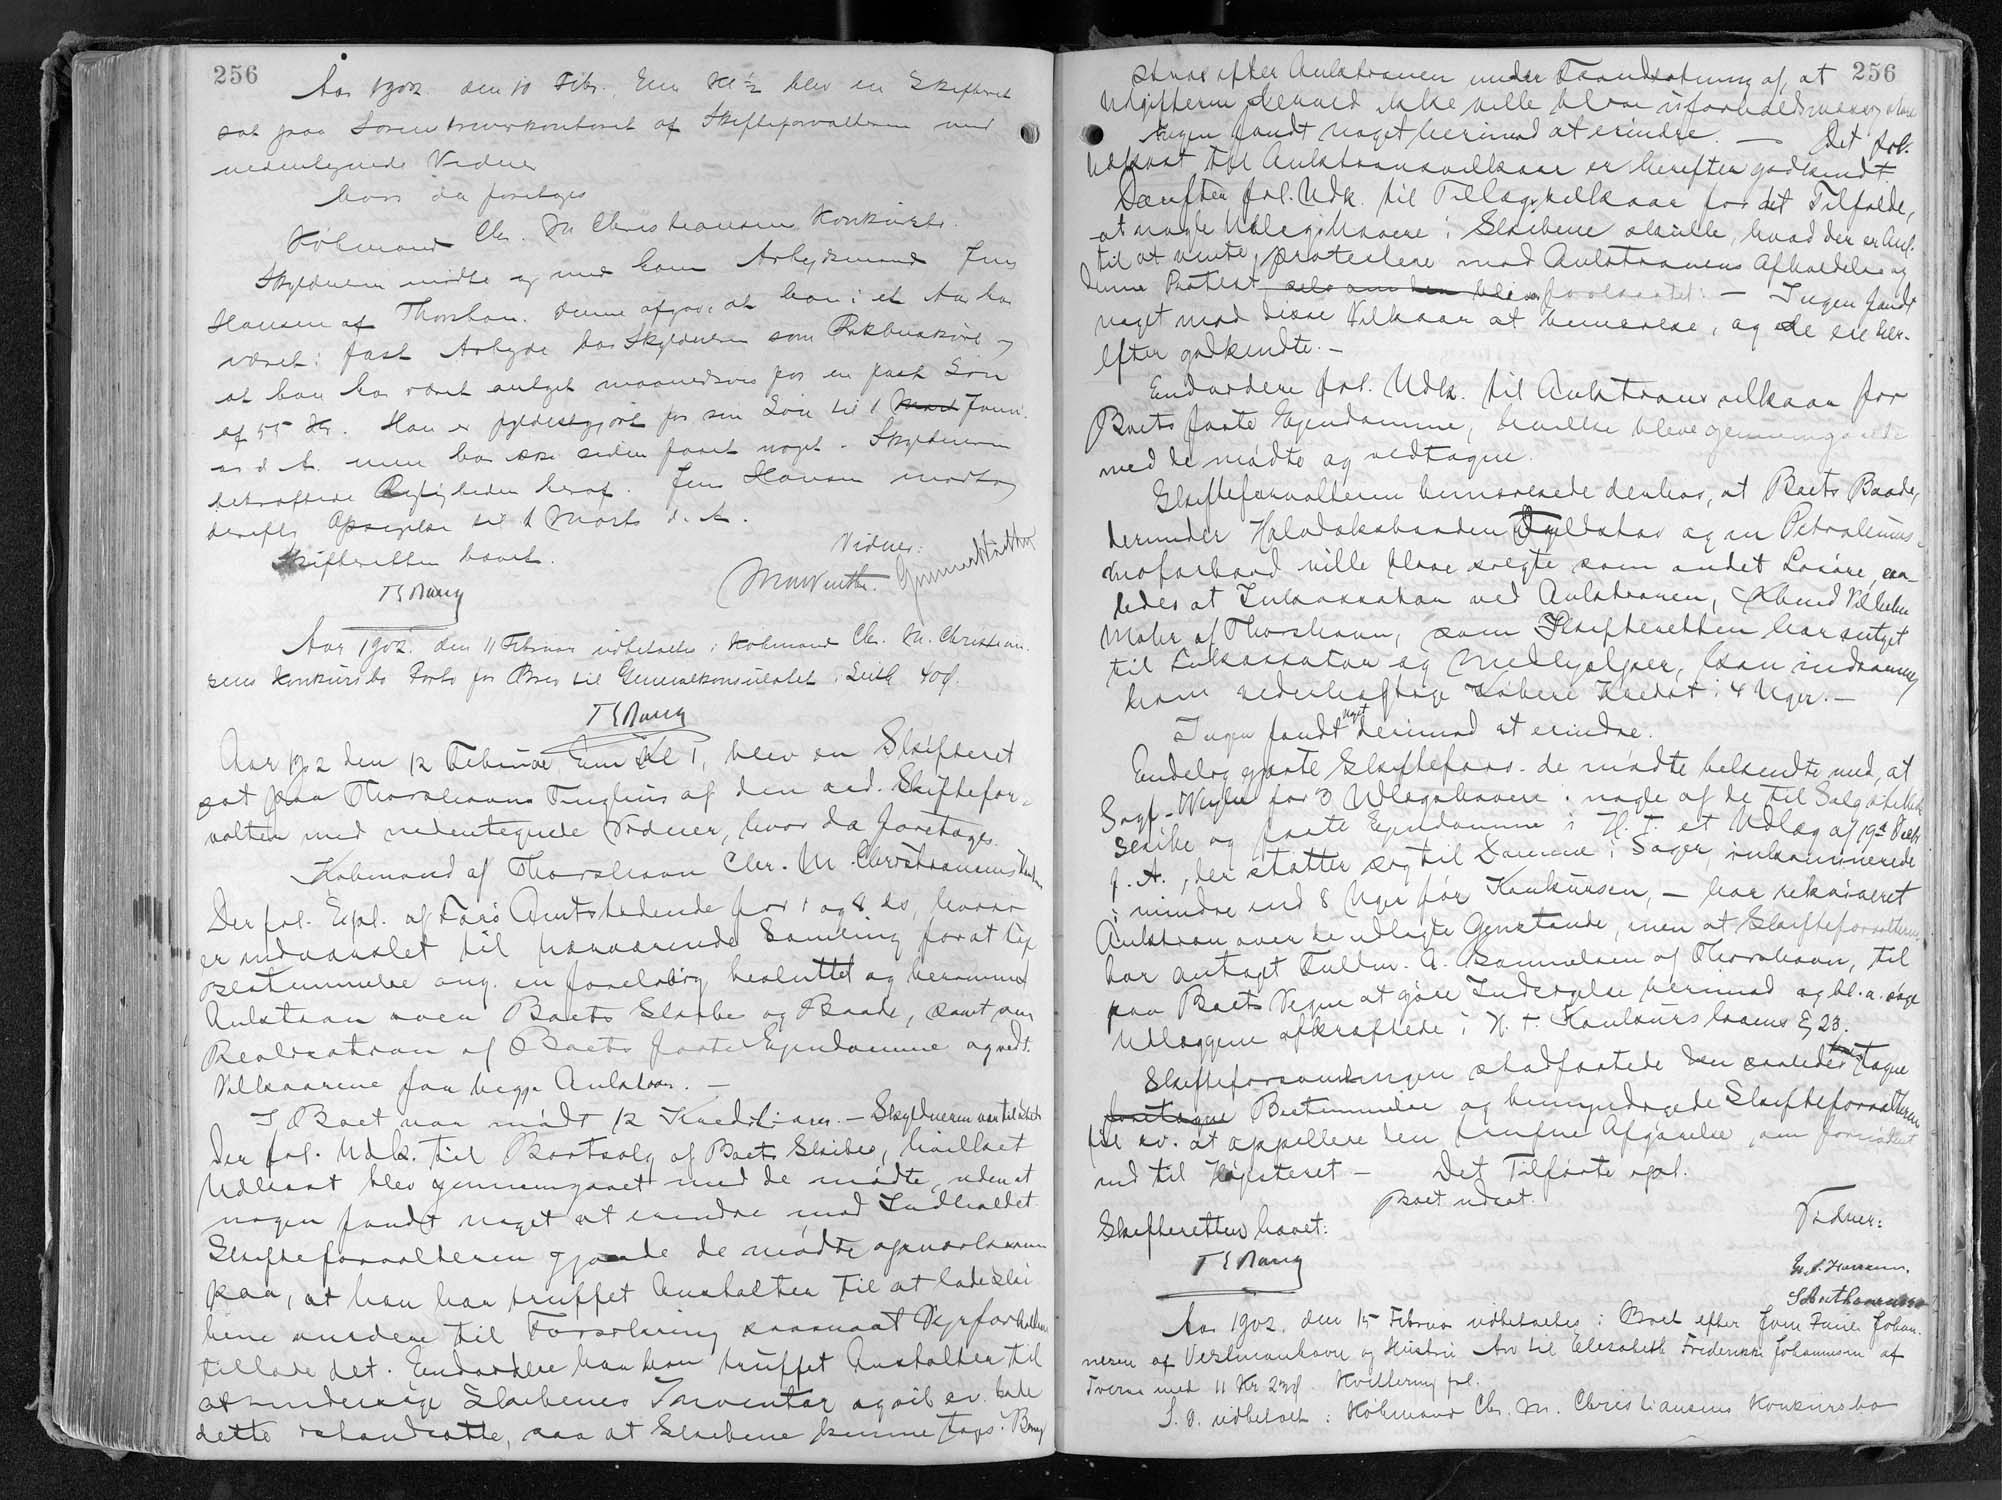 256
Aar 1902 den 10 Febr. Em Kl ½ blev en Skifteret
sat paa Sorenskriverkontoret af Skifteforvalteren med
nedentegnede Vidner
hvor da foretoges
Købmand Chr. M Christiansens Konkursbo.
Skyldneren mødte og med ham Arbejdsmand Jens
Hansen af Thorshavn. Denne afgav, at han i et Aar har
været i fast Arbejde hos Skyldneren som
at han har været antaget maanedsvis for en fast Løn
af 55 Kr. Han er fyldestgjort for sin Løn til 1 Marts Janu.
d. A. men har ikke siden faaet noget. Skyldneren
bekræftede Rigtigheden heraf. Jens Hansen modtog
derefter Opsigelse til 1 Marts d. A.
Skifteretten hævet.
Vidner:
Aar 1902 den 11 Februar udbetaltes i Købmand Chr. M. Christian-
sens Konkursbo Porto for Brev til Generalkonsulatet i Leith 40 Ø.
Aar 1902 den 12 Februar Em Kl 1, blev en Skifteret
sat paa Thorshavns Tinghus af den ord. Skiftefor-
valter med nedentegnede Vidner, hvor da foretoges
Købmand af Thorshavn Chr. M. Christiansens
Der frl. Expl. af Færø Amtstidende for 1 og 8 ds, hvor
er indvarslet til nærværende Samling for at tage
Bestemmelse ang. en foreløbig besluttet og berammet
Auktion over Boets Skibe og Baade, samt om
Realisation af Boets faste Ejendomme og vedt.
Vilkaarene for begge Auktion. —
I Boet var mødt 12 Kreditorer. — Skyldneren var tilstede
Der frl. Udk. til Bortsalg af Boets Skibe, hvilket
Udkast blev gennemgaaet med de mødte, uden at
nogen fandt noget at erindre mod Indholdet.
Skifteforvalteren gjorde de mødte opmærksom
paa, at han har truffet Anstalter til at lade Ski
bene vurdere til Forsikring saasnart Vejrforholdene
tillade det. Endvidere har han truffet Anstalter til
at undersøge Skibenes Inventar og vil ev. lade
dette istandsætte, saa at Skibene kunne tages i Brug
256
strax efter Auktionen under Forudsætning af, at
Udgifterne derved ikke ville blive uforholdsmæssig store
Ingen fandt noget herimod at erindre. — Det frl.
Udkast til Auktionsvilkaar er herefter godkendt.
Derefter frl. Udk. til Tillægsvilkaar for det Tilfælde,
at nogle Udlægshavere i Skibene skulle, hvad der er Anl.
til at vente, protestere mod Auktionens Afholdelse og
denne Protest — Ingen fandt
noget mod disse Vilkaar at bemærke, og de ere her-
efter godkendte. —
Endvidere frl. Udk. til Auktionsvilkaar for
Boets faste Ejendomme, hvilke bleve gennemgaaede
med de mødte og vedtagne.
Skifteforvalteren bemærkede derhos, at Boets Baade,
derunder Halvdæksbaaden og en Petroleums-
motorbaad ville blive solgte som andet Løsøre, saa-
ledes at Inkassator ved Auktionen, Købmd Vilhelm
Mohr af Thorshavn, som Skifteretten har antaget
til Inkassator og Medhjælper, kan indrømme
ham vederhæftige Købere Kredit i 4 Uger. —
Ingen fandt noget derimod at erindre.
Endelig gjorte Skifteforv. de mødte bekendte med, at
Sagf. for 3 Udlægshavere i nogle af de til Salg
Skibe og faste Ejendomme i H. T. et Udlæg af 19de
f. A., der støtter sig til Domme i Sager, inkaminerede
i mindre end 8 Uger før Konkursen, — har rekvireret
Auktion over de udlagte Genstande, men at Skifteforvalteren
har antaget Fuldm. A. Samuelsen af Thorshavn, til
paa Boets Vegne at gøre Indsigelse herimod og bl. a. søge
Udlæggene afkræftede i H. t. Konkurslovens § 23.
Skifteforsamlingen stadfæstede den saaledes tagne
foretagne Bestemmelse og bemyndigede Skifteforvalteren
til ev. at appellere den trufne Afgørelse, om fornødent
ind til Højesteret — Det Tilførte opl.
Boet udsat.
Skifteretten hævet:
Vidner:
Aar 1902 den 15 Februar udbetaltes i Boet efter Johan-
nesen af Vestmanhavn og Hustru Arv til Elisabeth Frederikke Johannesen af
Tveraa med 11 Kr. 23 Ø. Kvittering frl.
S. D. udbetalt i Købmand Chr. M. Christiansens Konkursbo